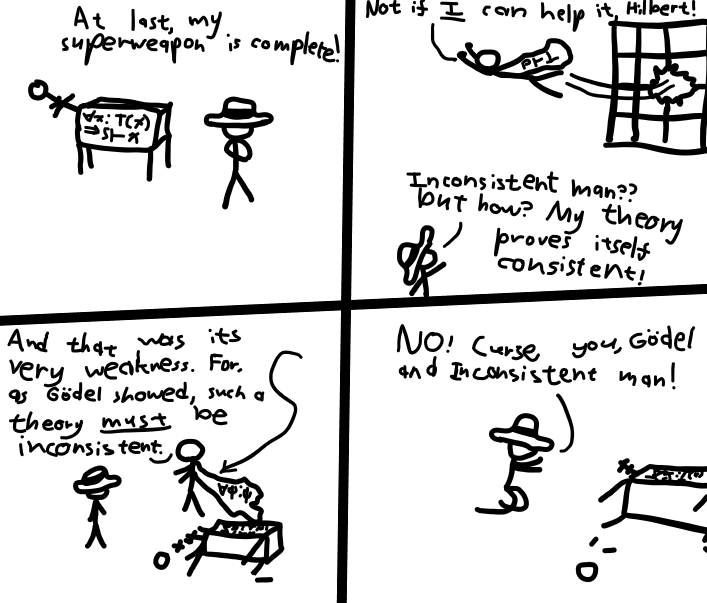 At last, my
superweapon is complete!
∀x: T(x)
⇒ S⊢x
Not if I can help it, Hilbert!
Inconsistent man??
but how? My theory
proves itself
consistent!
And that was its
very weakness. For,
as Gödel showed, such a
theory must be
inconsistent.
NO! Curse you, Gödel
and Inconsistent man!